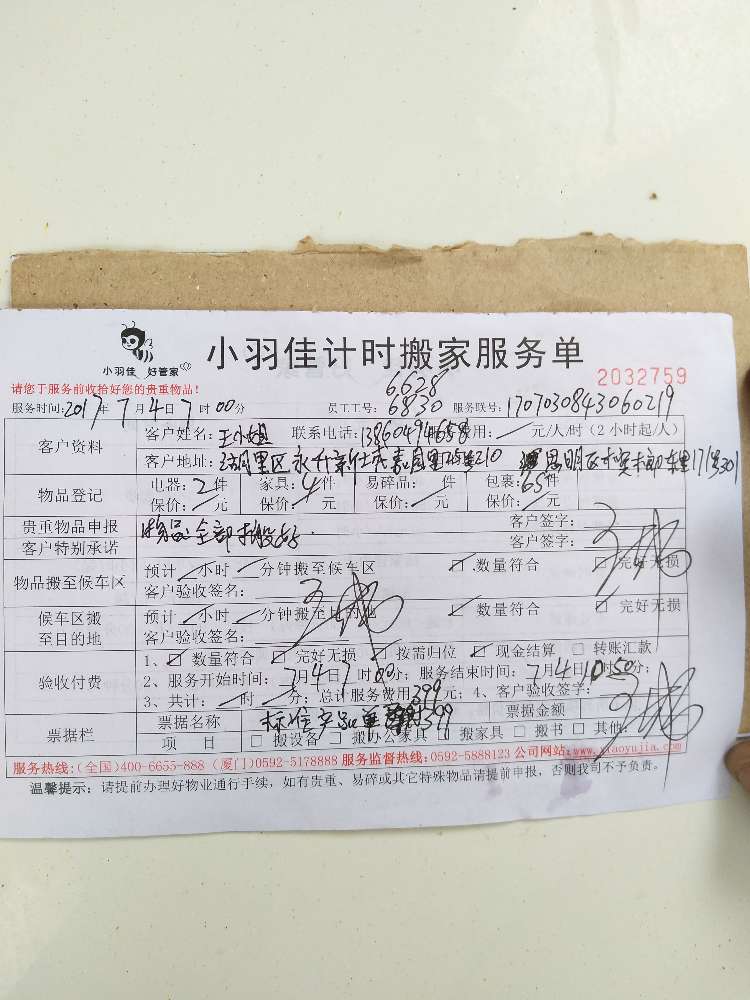 小羽佳 好管家
小羽佳计时搬家服务单
2032759
请您于服务前收拾好您的贵重物品!
6628
服务时间:2017年7月4日7时00分 员工工号:6830 服务联号:1707030843060219
客户资料
客户姓名:王小姐 联系电话:13860494658费用:/元/人/时(2小时起/人)
客户地址:湖里区永升新城嘉园里 210 思明区 东里171号301
物品登记
电器:2件 家具:4件 易碎品:/件 包裹:65件
保价:/元 保价:/元 保价:/元 保价:/元
贵重物品申报 物品全部搬好. 客户签字:
客户特别承诺 客户签字:
物品搬至候车区
预计/小时/分钟搬至候车区 ☑.数量符合 ☑完好无损
客户验收签名:
候车区搬至目的地
预计/小时/分钟搬至目的地 ☑.数量符合 □ 完好无损
客户验收签名:
验收付费
1、☑ 数量符合 ☑ 完好无损 ☑按需归位 ☑ 现金结算 □ 转账汇款
2、服务开始时间:7月4日7时00分;服务结束时间:7月4日10时50分;
3、共计:/时/分;总计服务费用399元;4、客户验收签字:
票据栏
票据名称 标准产品单 399 票据金额
项 目 □ 搬设备 □ 搬办公家具 □ 搬家具 □ 搬书 □ 其他:
服务热线:(全国)400-6655-888 (厦门)0592-5178888 服务监督热线:0592-5888123 公司网站:www.xiaoyujia.com
温馨提示:请提前办理好物业通行手续,如有贵重、易碎或其它特殊物品请提前申报,否则我司不予负责。